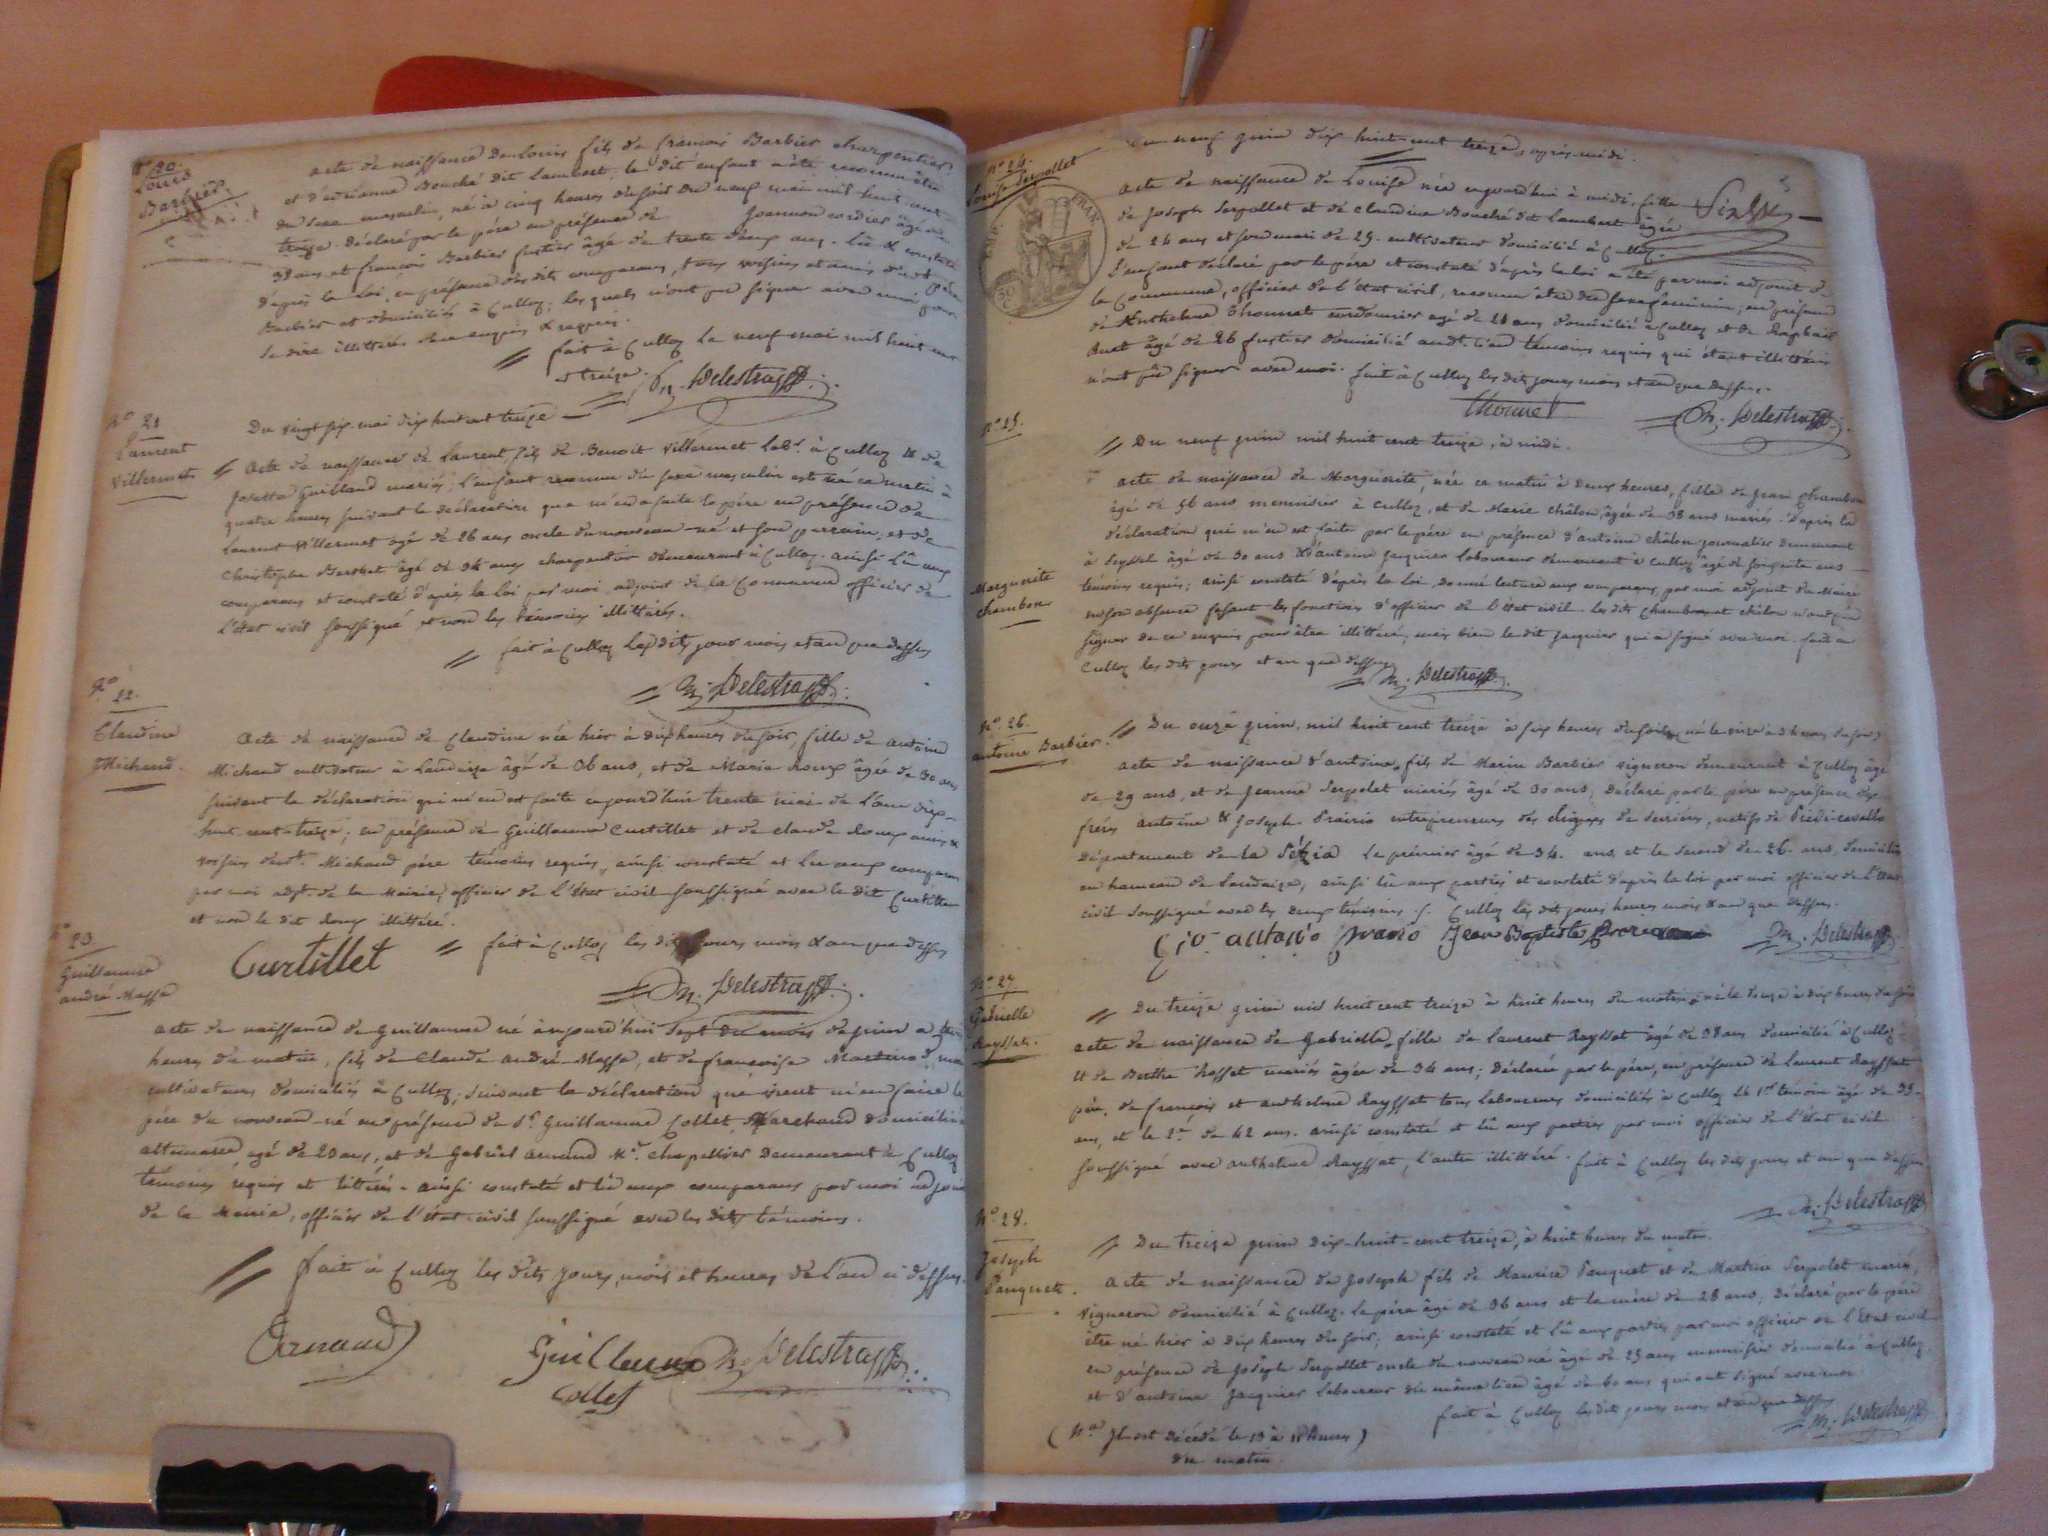 N° 20.
Louis
Barbier
acte de naissance de Louis fils de françois Barbier charpentier
et d'édrianne Bouché dit Lambert, le dit enfant a été reconnu être
du sexe masculin, né à cinq heures du soir du neuf mai mil huit cent
treize. Déclaré par le père en présence de Joannon cordier âgé de
38 ans et françois Barbier fustier âgé de trente deux ans. Lû & constaté
d'après la loi, en présence des dits comparans, tous voisins et amis du dit père
Barbier et domiciliés à Culloz; les quels n'ont pu signer avec moi pour
se dire illittérés de ce enquis & requis.
fait à Culloz le neuf mai mil huit cent
treize. Delestraff
N° 21
Laurent
Villermet
Du vingt six mai dix huit cent treize
Acte de naissance de Laurent fils de Benoit Villermet Lab.r à Culloz & de
Josette Guilland mariés; l'enfant reconnu du sexe masculin est né ce matin à
quatre heures suivant la déclaration que m'en a faite le père en présence de
Laurent Villermet âgé de 26 ans oncle du nouveau né et son parrain, et de
Christophe Berthet âgé de 34 ans charpentier demeurant à Culloz. ainsi lû aux
comparans et constaté d'après la loi par moi adjoint de la Commune officier de
l'état civil soussigné et non les témoins illittérés.
fait à Culloz les dits jour mois et an que dessus
Delestraff
N° 22.
Claudine
Michaud.
Acte de naissance de Claudine née hier à dix heures du soir, fille de antoine
Michaud cultivateur à Landaize âgé de 36 ans, et de Marie Roux âgée de 30 ans
suivant la déclaration qui m'en est faite cejourd'hui trente mai de l'an dix-
huit cent-treize; en présence de Guillaume Curtillet et de claude Roux amis &
voisins dudt. Michaud père témoins requis, ainsi constaté et lu aux comparans
par moi adjt. de la Mairie, officier de l'état civil soussigné avec le dit Curtillet
et non le dit Roux illittéré.
fait à Culloz les dits jours mois & an que dessus
Curtillet
Delestraff
N° 23.
Guillaume
andré-Masse
acte de naissance de Guillaume né aujourd'hui sept du mois de juin a trois
heures du matin, fils de Claude andré-Masse, et de françoise Martinod, mariés
cultivateurs domiciliés à Culloz; suivant la déclaration que vient m'en faire le
père du nouveau-né en présence de Sr. Guillaume Collet, Marchand domicilié
âgé de 20 ans, et de Gabriel arnaud Mr. chapellier demeurant à Culloz
témoins requis et littérés. ainsi constaté et lû aux comparans par moi adjoint
de la Mairie, officier de l'état-civil soussigné avec les dits témoins.
fait à Culloz les dits jours, mois et heures de l'an ci dessus.
Arnaud
Guillaume Delestraff
Collet
Du neuf juin dix huit-cent treize, après-midi.
N° 24.
Louise Serpollet
acte de naissance de Louise née cejourd'hui à midi, fille
de Joseph Serpollet et de Claudine Bouché dit Lambert âgée
de 24 ans et son mari de 25. cultivateur domicilié à Culloz.
l'enfant déclaré par le père et constaté d'après la loi a été par moi adjoint de
la Commune, officier de l'état civil, reconnu être du sexe féminin, en présence
de Anthelme Thonnet cordonnier âgé de 28 ans domicilié à Culloz et de Raphaël
Buet âgé de 26 fustier domicilié audt. lieu témoins requis qui étant illittérés
n'ont pû signer avec moi. fait à Culloz les dits jours mois et an que dessus.
Delestraff
N° 25.
Marguerite
Chambon
Du neuf juin mil huit cent treize, à midi.
acte de naissance de Marguerite, née ce matin à deux heures, fille de Jean Chambon
âgé de 46 ans menuisier à Culloz, et de Marie Châlon, âgée de 38 ans mariés. d'après la
déclaration qui m'en est faite par le père en présence d'antoine châlon journalier demeurant
à Seyssel âgé de 30 ans & d'antoine Jacquier laboureur demeurant à Culloz âgé de soixante ans
témoins requis; ainsi constaté d'après la loi, donné lecture aux comparans, par moi adjoint du Maire
en son absence faisant les fonctions d'officier de l'état civil. les dits Chambon et châlon n'ont pu
signer de ce enquis pour être illittéré, mais bien le dit Jacquier qui a signé avec moi. fait à
Culloz les dits jours et an que dessus
Delestraff
N° 26.
antoine Barbier.
Du onze juin, mil huit cent treize à six heures du soir (né le onze à 3 heures du soir)
acte de naissance d'antoine, fils de Marin Barbier vigneron demeurant à Culloz âgé
de 29 ans, et de Jeanne Serpolet mariés âgé de 30 ans; Déclaré par le père en présence des
frères Antoine & Joseph Prairio entrepreneurs des digues de Serrières, natifs de Piedicavallo
Département de la Sézia le prémier âgé de 34. ans, et le second de 26. ans, domiciliés
en hameau de Landaize, ainsi lû aux parties et constaté d'après la loi par moi officier de l'état
civil soussigné avec les deux témoins. Culloz les dits jours heures mois & an que dessus.
Gio antonio Jean Baptiste Delestraff
N° 27
Gabrielle
Rayssat.
Du treize juin mil huit cent treize à huit heures du matin, née le douze à dix heures du soir
acte de naissance de Gabrielle, fille de Laurent Rayssat âgé de 38 ans domicilié à Culloz
et de Berthe Rosset mariés âgée de 34 ans; Déclarée par le père, en présence de Laurent Rayssat
père, de françois et anthelme Rayssat tous laboureurs domiciliés à Culloz le 1er témoin âgé de 35-
ans, et le 2.e de 42 ans. ainsi constaté et lû aux parties par moi officier de l'état civil
soussigné avec anthelme Rayssat, l'autre illittéré. fait à Culloz les dits jours et an que dessus
Delestraff
N° 28.
Joseph
Pauquet.
Du treize juin Dix-huit-cent treize, à huit heures du matin.
acte de naissance de Joseph fils de Maurice Pauquet et de Martine Serpolet mariés,
vigneron domicilié à Culloz. le père âgé de 36 ans et la mère de 28 ans, Déclaré par le père
être né hier à dix heures du soir; ainsi constaté et lû aux parties par moi officier de l'état civil
en présence de Joseph Serpollet oncle du nouveau né âgé de 25 ans menuisier domicilié à Culloz,
et d'antoine Jacquier laboureur du même lieu âgé de 60 ans qui ont signé avec moi
fait à Culloz les dits jours mois et an que dessus
Delestraff
(Na. Il est décédé le 13 à 11 heures)
du matin